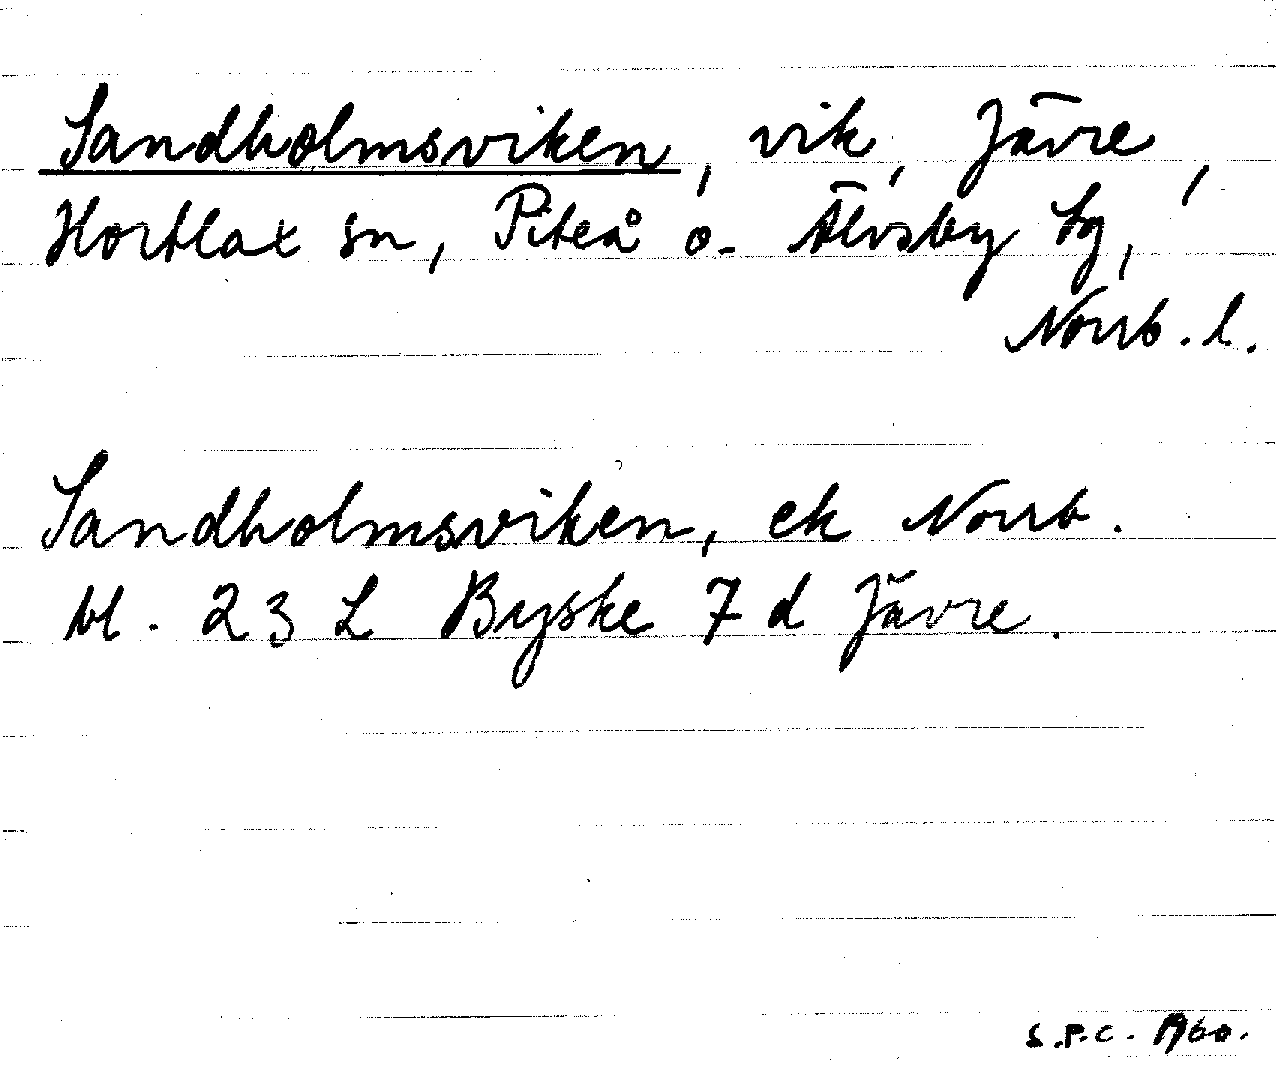 Sandholmsviken, vik, Jävre,
Hortlax sn, Piteå o. Älvsby tg,
Norrb. l.
Sandholmsviken, ek Norrb.
bl. 23 L Byske 7 d Jävre.
S.P.C. 1960.